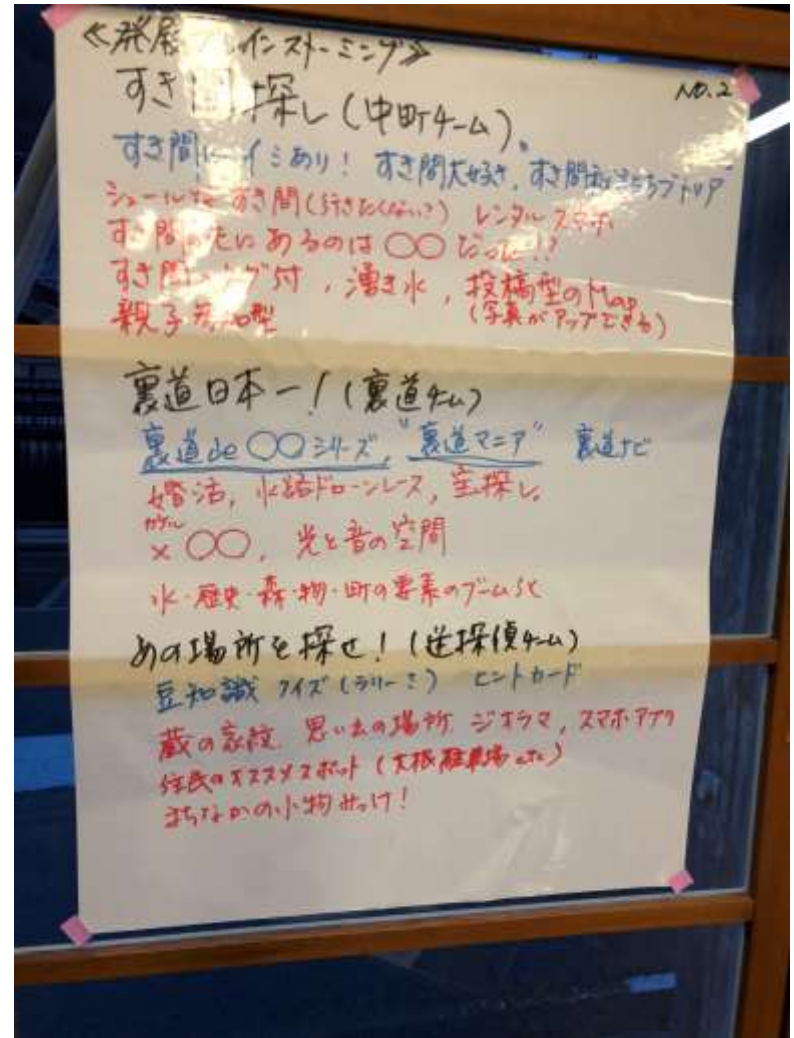 ≪発展ブレインストーミング≫
NO.2
すき間探し(中町チーム)。
すき間にイミあり! すき間大好き、すき間
シュールなすき間(行きたくない?) レンタルスマホ
すき間の先にあるのは〇〇だった!?
すき間 付, 湧き水, 投稿型のMap
親子参加型 (写真がアップできる)
裏道日本一!(裏道チーム)
裏道de〇〇シリーズ, "裏道マニア" 裏道ナビ
婚活, 水路ドローンレース, 宝探し。
×〇〇, 光と音の空間
水・歴史・森・物・町の要素の
あの場所を探せ!(迷探偵チーム)
豆知識 クイズ(ラリー) ヒントカード
蔵の家紋、思い出の場所、ジオラマ, スマホアプリ
住民のオススメスポット(大根 etc)
まちなかの小物みっけ!